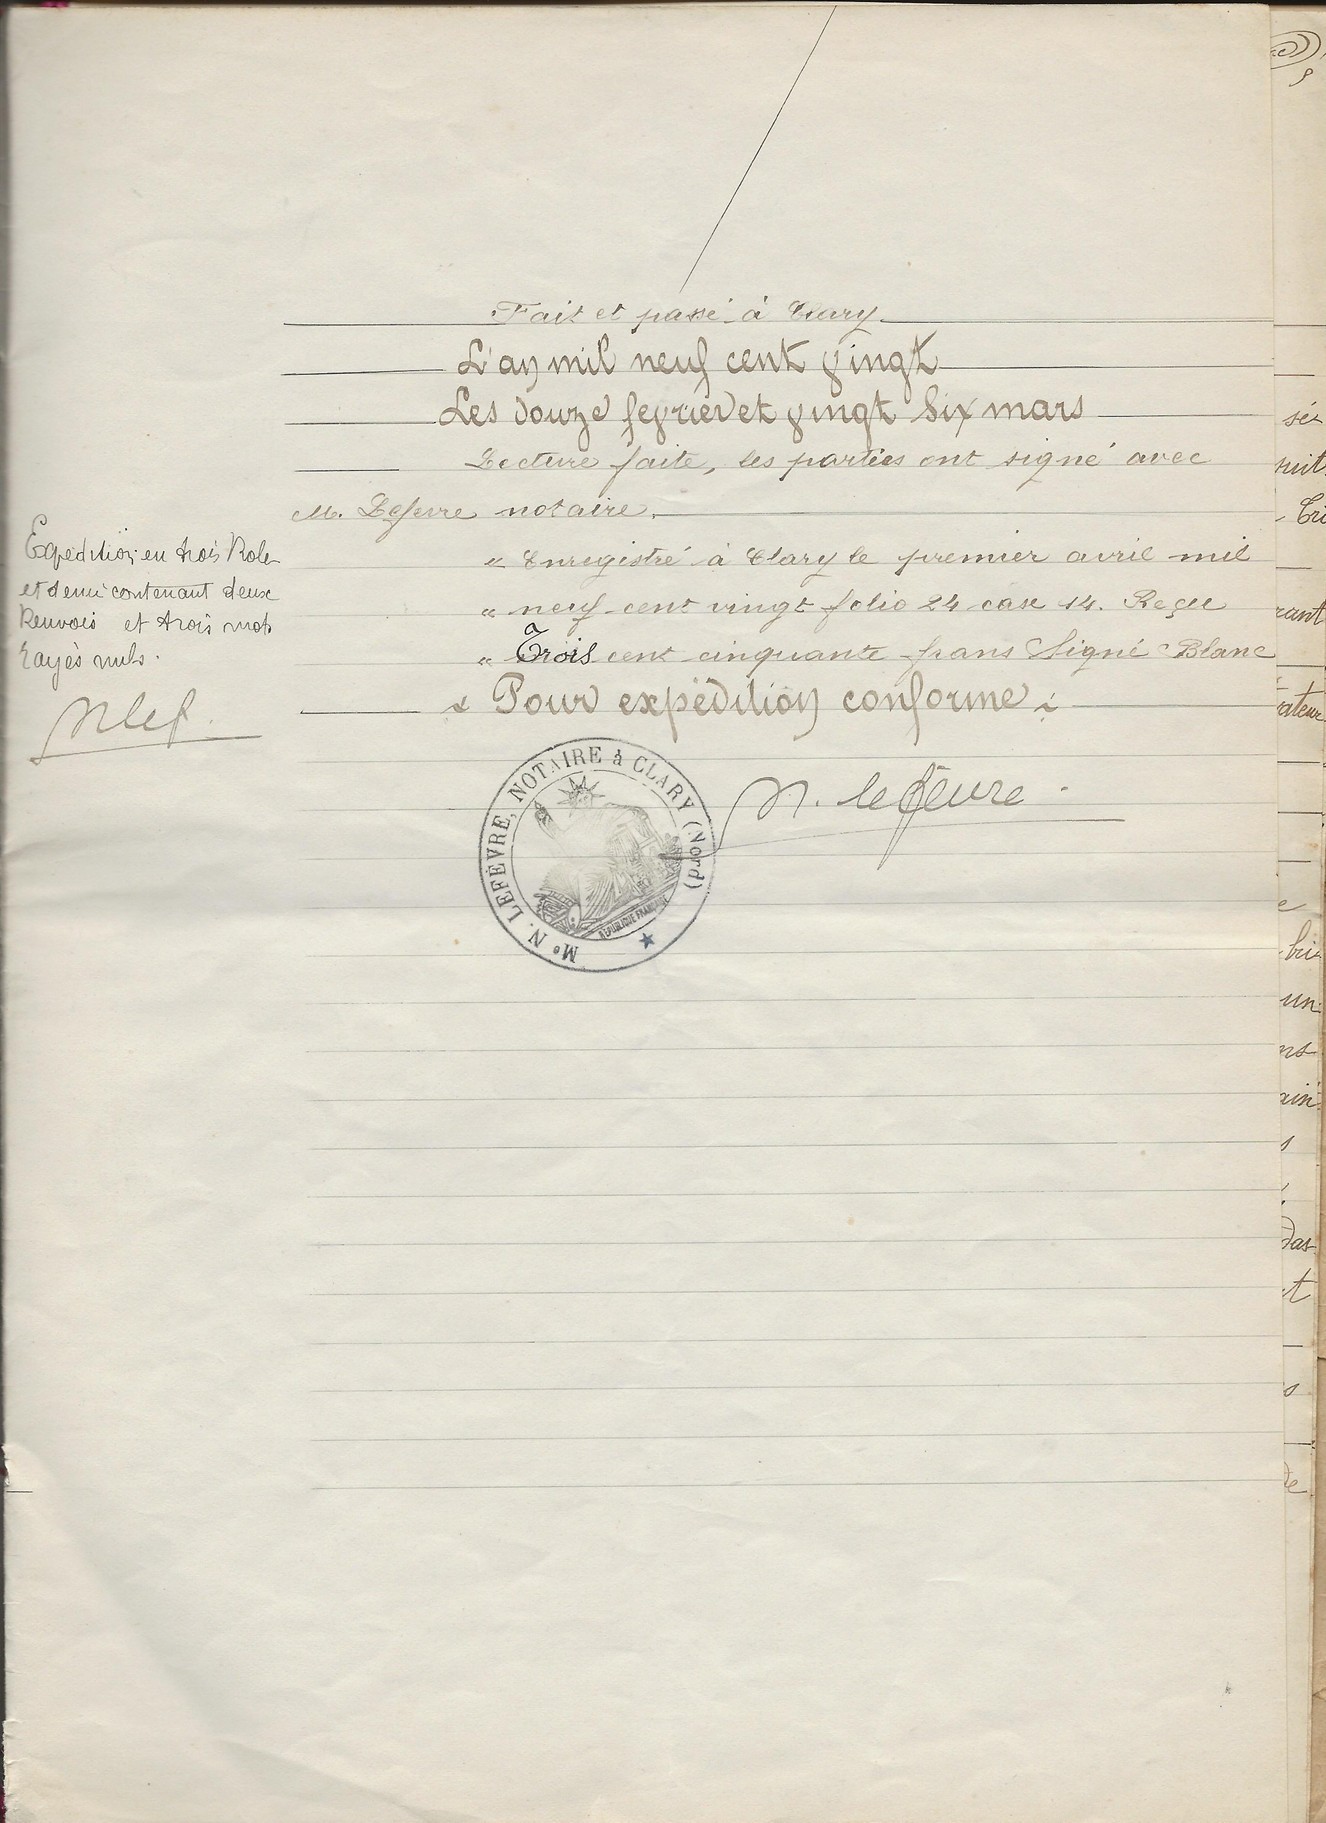 Fait et passé à Clary.
L'an mil neuf cent vingt
Les douze fevrier et vingt six mars
Lecture faite, les parties ont signé avec
M. Lefevre notaire.
« Enregistré à Clary le premier avril mil
« neuf cent vingt folio 24 case 14. Reçu
« Trois cent cinquante frans Signé Blanc
Pour expédition conforme
Expédition en trois Roles
et demi contenant deux
Renvois et trois mots
rayés nuls.
N Lef.
N. Lefèvre
Me N. LEFÈVRE, NOTAIRE à CLARY (Nord)
RÉPUBLIQUE FRANÇAISE
sé
suit
Tri
rant
ateur
e
bri
un
ns
ain
s
das
t
s
de